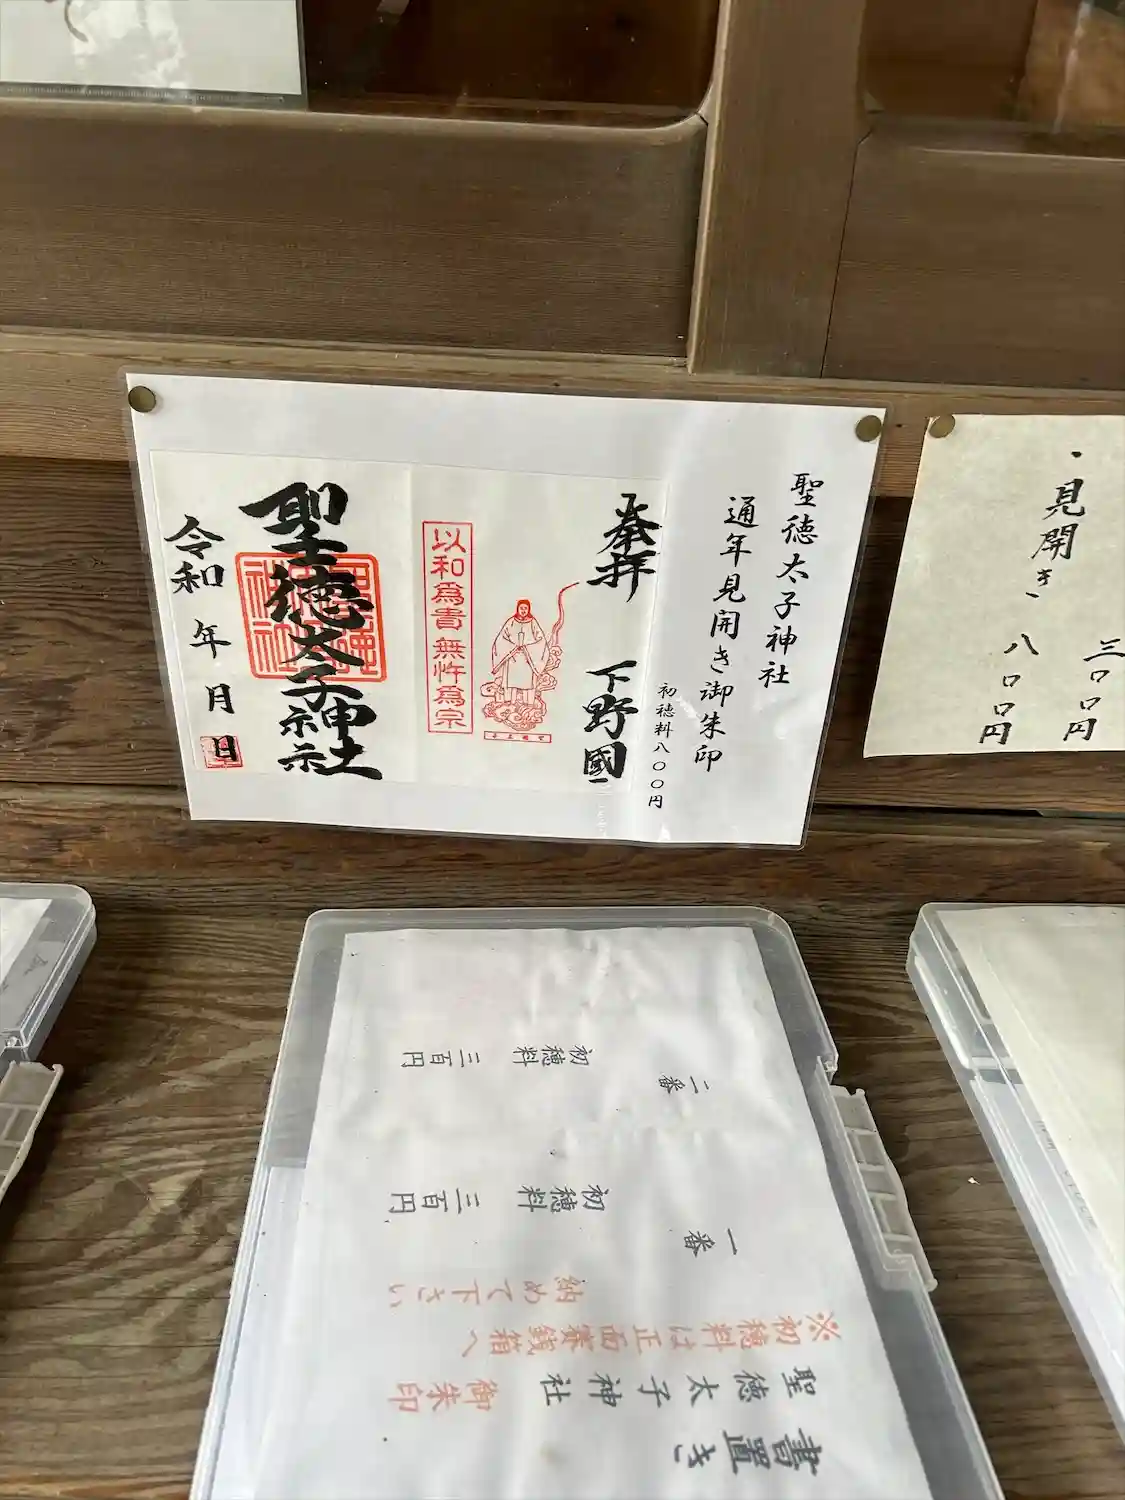 聖徳太子神社
通年見開き御朱印
初穂料八〇〇円
奉拝
下野國
以和爲貴無忤爲宗
聖徳太子神社
令和 年 月 日
三〇〇円
・見開き、八〇〇円
書置き
聖徳太子神社 御朱印
※初穂料は正面賽銭箱へ
納めて下さい
一番
初穂料 三百円
二番
初穂料 三百円